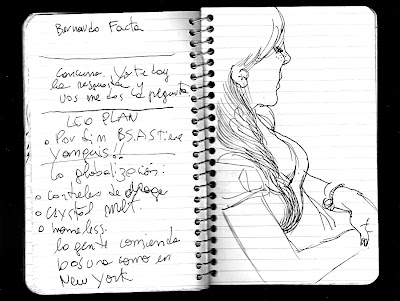 Bernardo Facta
Concurso. Yo te doy
la respuesta y
vos me das la pregunta
LEO PLAN
o Por fin BS.AS tiene
yanquis!!
La globalización:
o Carteles de droga
o Crystal Met.
o homeless.
la gente comiendo
basura como en
New York